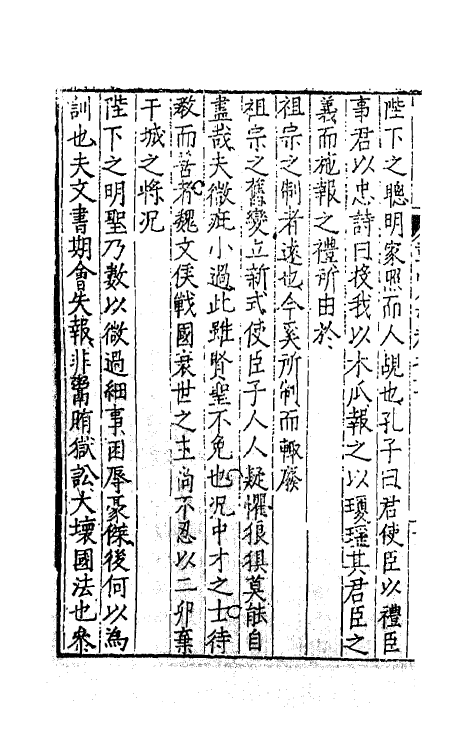 陛下之聰明家照而人覘也孔子曰君使臣以禮臣
事君以忠詩曰投我以木瓜報之以瓊瑤其君臣之
義而施報之禮所由於
祖宗之制者遠也今奚所制而輒廢
祖宗之舊變立新式使臣子人人疑懼狼狽莫能自
盡哉夫微疵小過此雖賢聖不免也況中才之士待
教而善者魏文侯戰國衰世之主尚不忍以二卵棄
干城之將況
陛下之明聖乃數以微過細事困辱豪傑後何以為
訓也夫文書期會失報非鬻賄獄訟大壞國法也祭